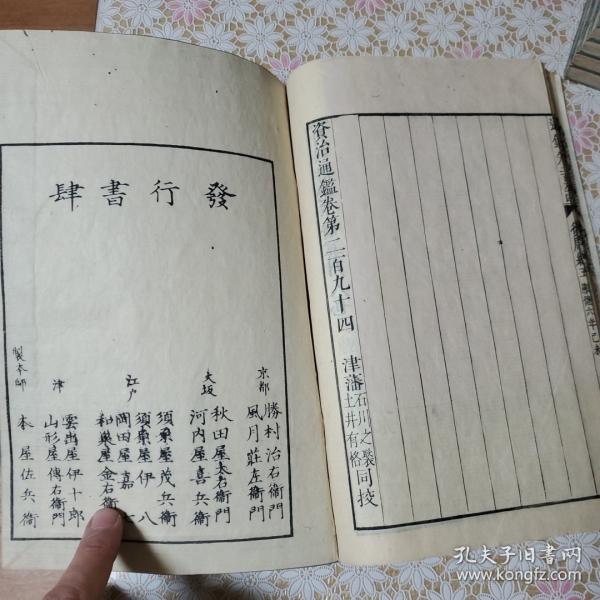 資治通鑑卷第二百九十四
津藩
石川之褧
土井有格
同挍
發行書肆
京都
勝村治右衞門
風月莊左衞門
大坂
秋田屋太右衞門
河内屋喜兵衞
江戸
須原屋茂兵衞
須原屋伊八
岡田屋嘉七
和泉屋金右衞
津
雲出屋伊十郎
山形屋傳右衞門
製本師
本屋佐兵衞
孔夫子旧書网
www.kongfz.com